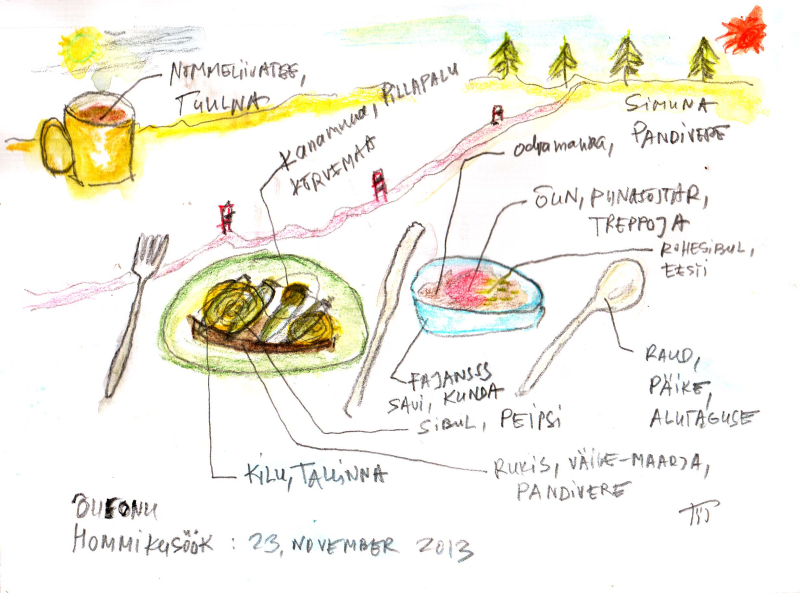 NÕMMELIIVATEE,
TUULNA
Kanamuna, PILLAPALU
KÕRVEMAA
SIMUNA
PANDIVERE
odramanna,
ÕUN, PUNASÕSTAR,
TREPPOJA
ROHESIBUL,
EESTI
RAUD,
PÄIKE,
ALUTAGUSE
FAJANSSS
SAVI, KUNDA
SIBUL, PEIPSI
RUKIS, VÄIKE-MAARJA,
PANDIVERE
KILU, TALLINNA
BUFONU
HOMMIKUSÖÖK : 23, NOVEMBER 2013